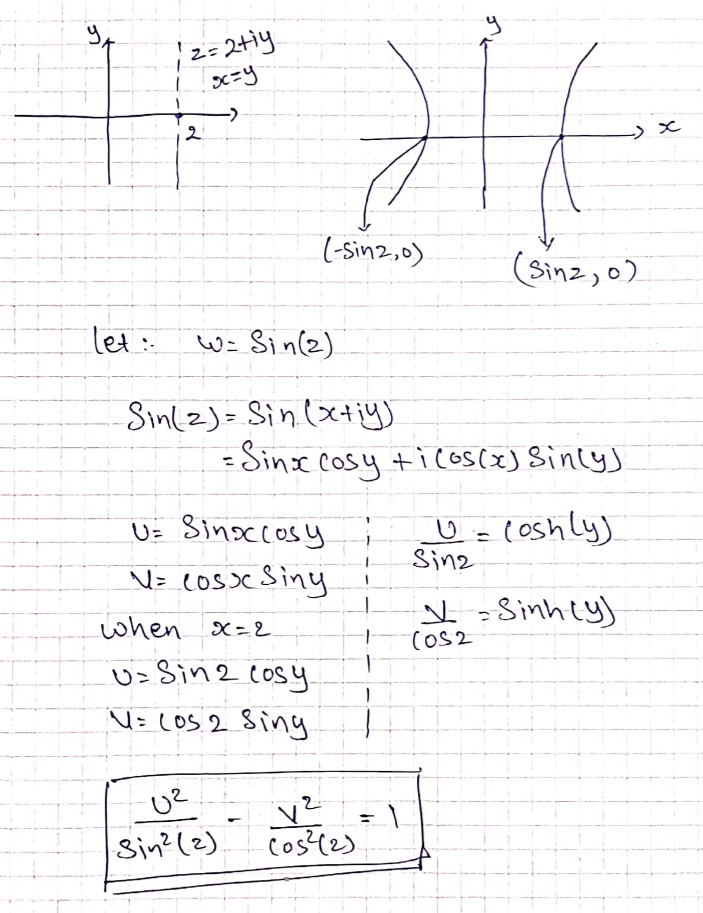 y
z=2+iy
x=y
2
y
x
(-sin2,0)
(sin2,0)
let:. w= Sin(z)
Sin(z)= Sin(x+iy)
= Sinx cosy + i cos(x) Sin(y)
U= Sinx cosy
V= cosx Siny
when x=2
U= Sin2 cosy
V= cos2 Siny
U/Sin2 = cosh(y)
V/cos2 = Sinh(y)
U²/Sin²(2) - V²/cos²(2) = 1